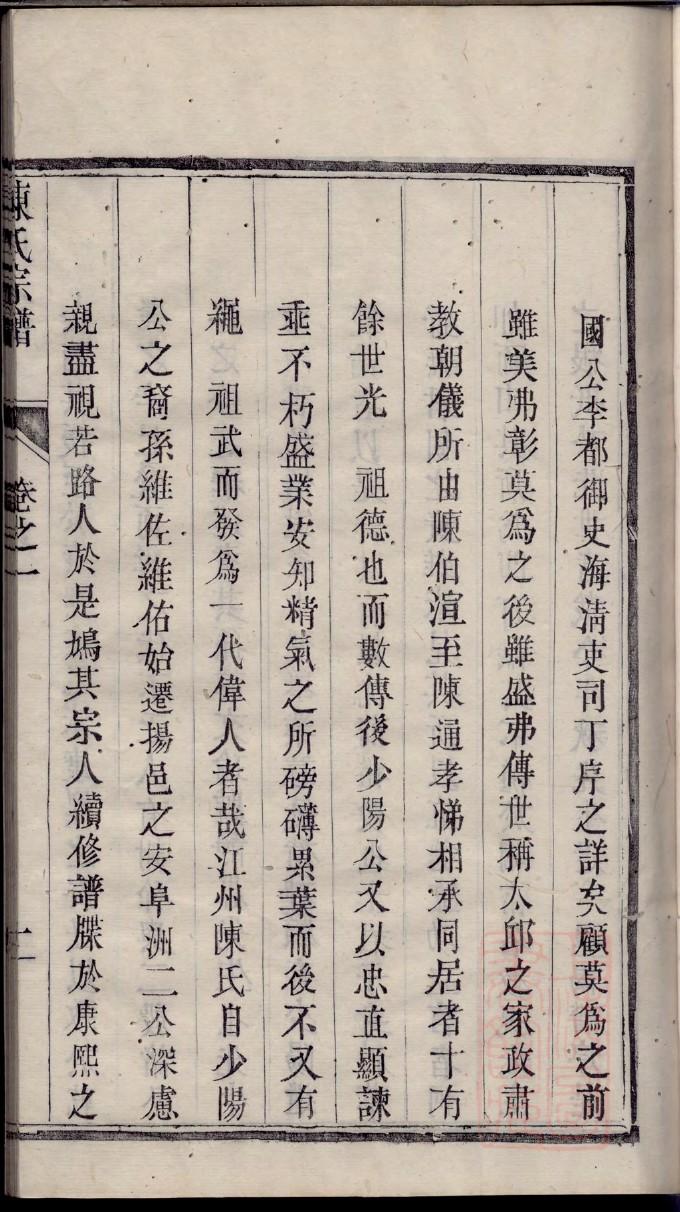 國公李都御史海淸吏司丁序之詳矣顧莫爲之前
雖美弗彰莫爲之後雖盛弗傳世稱太邱之家政肅
敎朝儀所由陳伯渲至陳通孝悌相承同居者十有
餘世光 祖德也而數傳後少陽公又以忠直顯諫
垂不朽盛業安知精氣之所磅礴累葉而後不又有
繩 祖武而發爲一代偉人者哉江州陳氏自少陽
公之裔孫維佐維佑始遷揚邑之安阜洲二公深慮
親盡視若路人於是鳩其宗人續修譜牒於康熙之
陳氏宗譜
卷之一